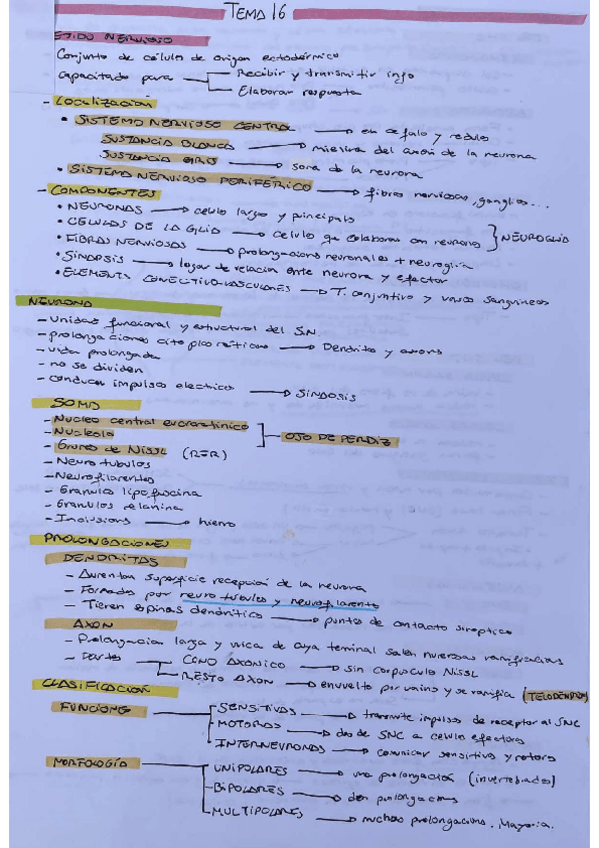 TEMA 16
TEJIDO NERVIOSO
Conjunto de células de origen ectodérmico
Capacitado para → Recibir y transmitir info
→ Elaborar respuesta
- Localización
• SISTEMA NERVIOSO CENTRAL → encefalo y
SUSTANCIA BLANCA → mielina del axon de la neurona
SUSTANCIA GRIS → soma de la neurona
• SISTEMA NERVIOSO PERIFÉRICO → fibras nerviosas, ganglios...
- COMPONENTES
• NEURONAS → celula larga y principals
• CÉLULAS DE LA GLIA → celula q colaboran con neurona } NEUROGLIA
• FIBRAS NERVIOSAS → prolongaciones neuronales + neuroglia
• SINAPSIS → lugar de relacion entre neurona y efector
• ELEMENTS CONECTIVO-VASCULARES → T. conjuntivo y vasos sanguineos
NEURONA
- Unidad funcional y estructural del S.N.
- prolongaciones citoplasmáticas → Dendritas y axons
- vida prolongada
- no se dividen
- conducen impulsos electricos → SINAPSIS
SOMA
- Nucleo central eucromatinico
- Nucleolo
- Grumos de Nissl (RER) ] OJO DE PERDIZ
- Neurotubulos
- Neurofilamentos
- Granulos lipofuscina
- Granulos melanina
- Inclusions → hierro
PROLONGACIONES
DENDRITAS
- Aumentan superficie recepcion de la neurona
- Formadas por neurotubulos y neurofilamento
- Tienen espinas dendriticas → puntos de contacto sinaptico
AXON
- Prolongacion larga y unica de cuya terminal salen numerosas ramificacions
- Partes → CONO AXONICO → sin corpusculo Nissl
→ RESTO AXON → envuelto por vaina y se ramifica (TELODENDRON)
CLASIFICACION
FUNCIONS → SENSITIVAS → transmite impulsos de receptor al SNC
→ MOTORAS → das de SNC a celula efectora
→ INTERNEURONAS → comunicar sensitiva y motora
MORFOLOGIA → UNIPOLARES → una prolongación (invertebrados)
→ BIPOLARES → dos prolongacions
→ MULTIPOLARES → muchas prolongacions. Mayoria.